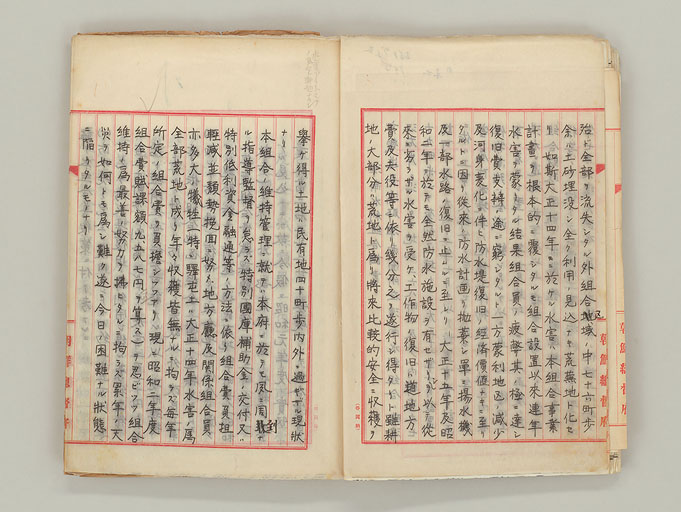 殆ト全部ヲ流失シタル外組合地域ノ中七十六町歩
余ハ土砂埋没シ全ク利用ノ見込ナキ荒蕪地ト化セ
リ如斯大正十四年ニ於ケル水害ハ本組合事業
計画ヲ根本的ニ覆シタルモ組合設置以来連年
水害ヲ蒙リタル結果組合員ノ疲弊其ノ極ニ達シ
復旧費支辨ノ途ニ窮シタルト一方蒙利地区減少
及河身変化ニ伴ヒ防水堤復旧ノ経済価値ナキニ至リ
タルトニ因リ従来ノ防水計画ヲ抛棄シ単ニ揚水機
及一部水路ノ復旧ニ止ムルニ至レリ 大正十五年及昭
和二年ニ於テモ全然防水施設ヲ有セサリシ以テ従
来ニ劣ラサル水害ヲ受ケ工作物ノ復旧ハ道地方
費及夫役等ニ依リ幾分之ヲ遂行シ得タリト雖耕
地ノ大部分ハ荒地ト為リ将来比較的安全ニ収穫ヲ
挙ケ得ル土地ハ民有地四十町歩内外ニ過サル現状
ナリ
本組合ノ維持管理ニ就テハ本府ニ於テモ夙ニ周到ナ
ル指導監督ヲ怠ラス特別国庫補助金ノ交付又ハ
特別低利資金融通等ノ方法ニ依リ組合費負担
軽減並頽勢挽回ニ努メ地方廳及関係組合員
亦多大ノ犠牲ニ特ニ驛屯土ハ大正十四年水害ノ為
全部荒地ト成リ年々収穫皆無ナルニ不拘ラス毎年
所定ノ組合費ヲ負擔シツツアリ 現ニ昭和二年度
組合費賦課額九五八七円ヲ算ス）ヲ忍ヒツツ組合
維持ノ為最善ノ努力ヲ拂ヒタルニ拘ラス累年ノ天
災ハ如何トモ為シ難ク遂ニ今日ノ困難ナル状態
ニ陥リタルモノナリ
朝鮮総督府